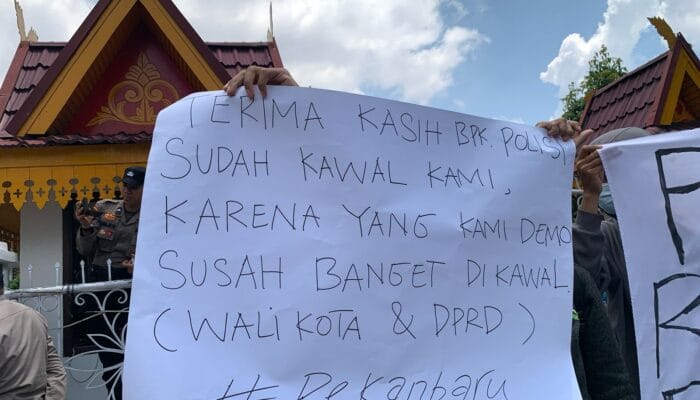 TERIMA KASIH BPK. POLISI
SUDAH KAWAL KAMI,
KARENA YANG KAMI DEMO
SUSAH BANGET DIKAWAL.
(WALI KOTA & DPRD)
# Pekanbaru
P
B